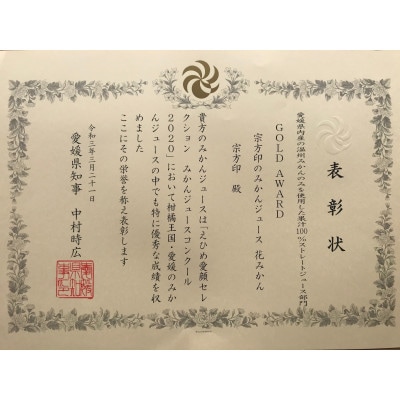 表彰状
愛媛県内産の温州みかんのみを使用した果汁100%ストレートジュース部門
GOLD AWARD
宗方印のみかんジュース 花みかん
宗方印 殿
貴方のみかんジュースは「えひめ愛顔セレ
クション みかんジュースコンクール
2020」において柑橘王国・愛媛のみか
んジュースの中でも特に優秀な成績を収
めました
ここにその栄誉を称え表彰します
令和三年三月二十一日
愛媛県知事 中村時広